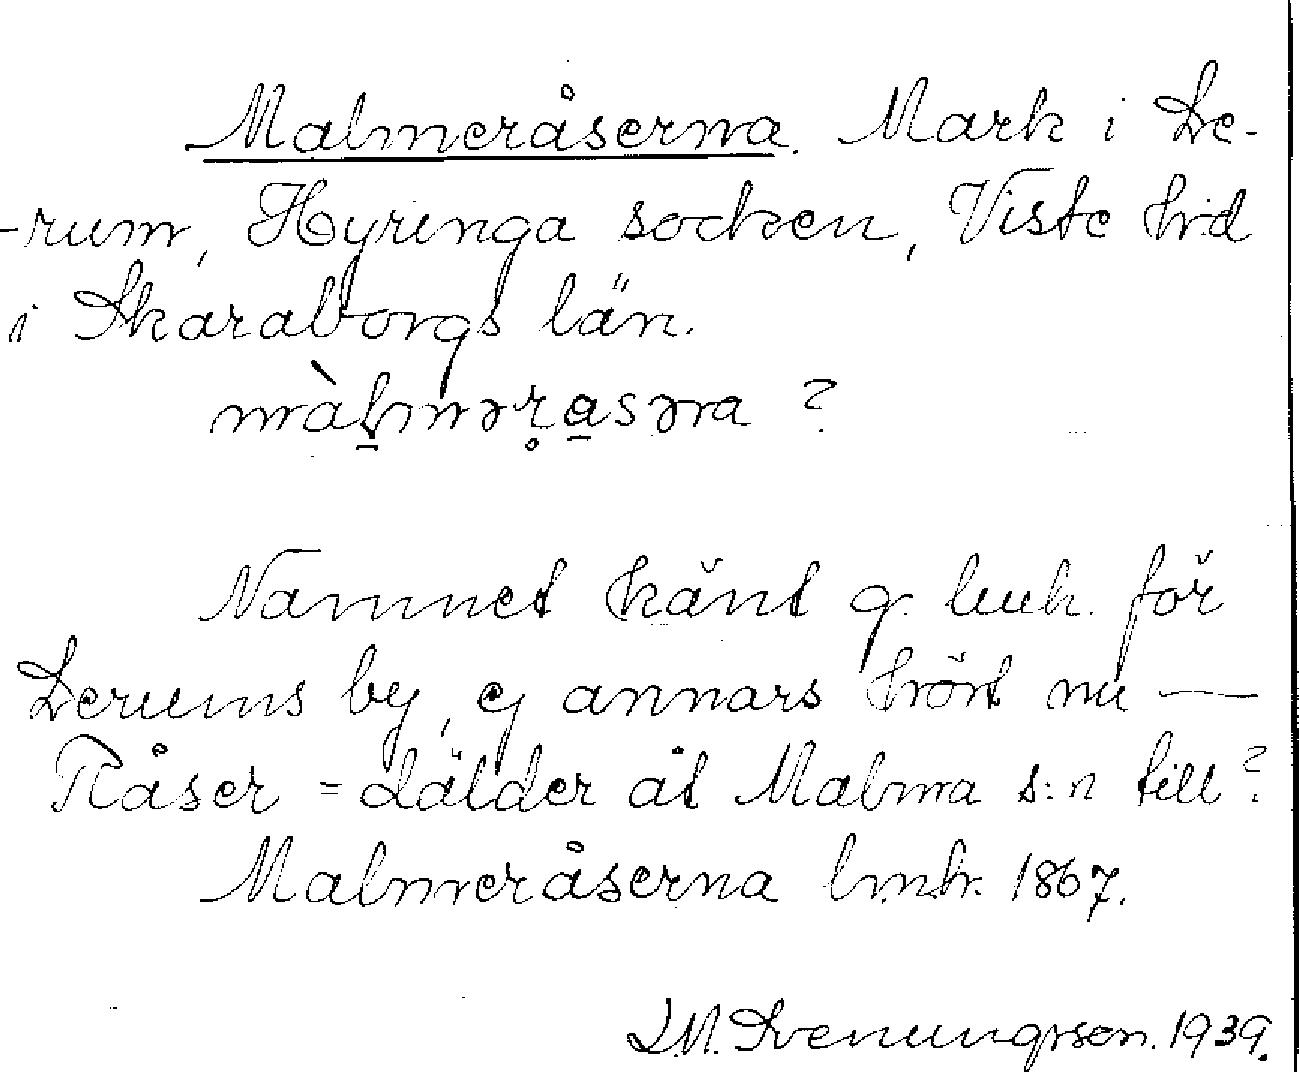 Malmeråserna. Mark i Le-
-rum, Hyringa socken, Viste hd
i Skaraborgs län.
màlmərasəna ?
Namnet känt g. lmk. för
Lerums by, ej annars hört nu —
Råser = dälder åt Malma s:n till?
Malmeråserna lmk. 1867.
Svenungsson. 1939.